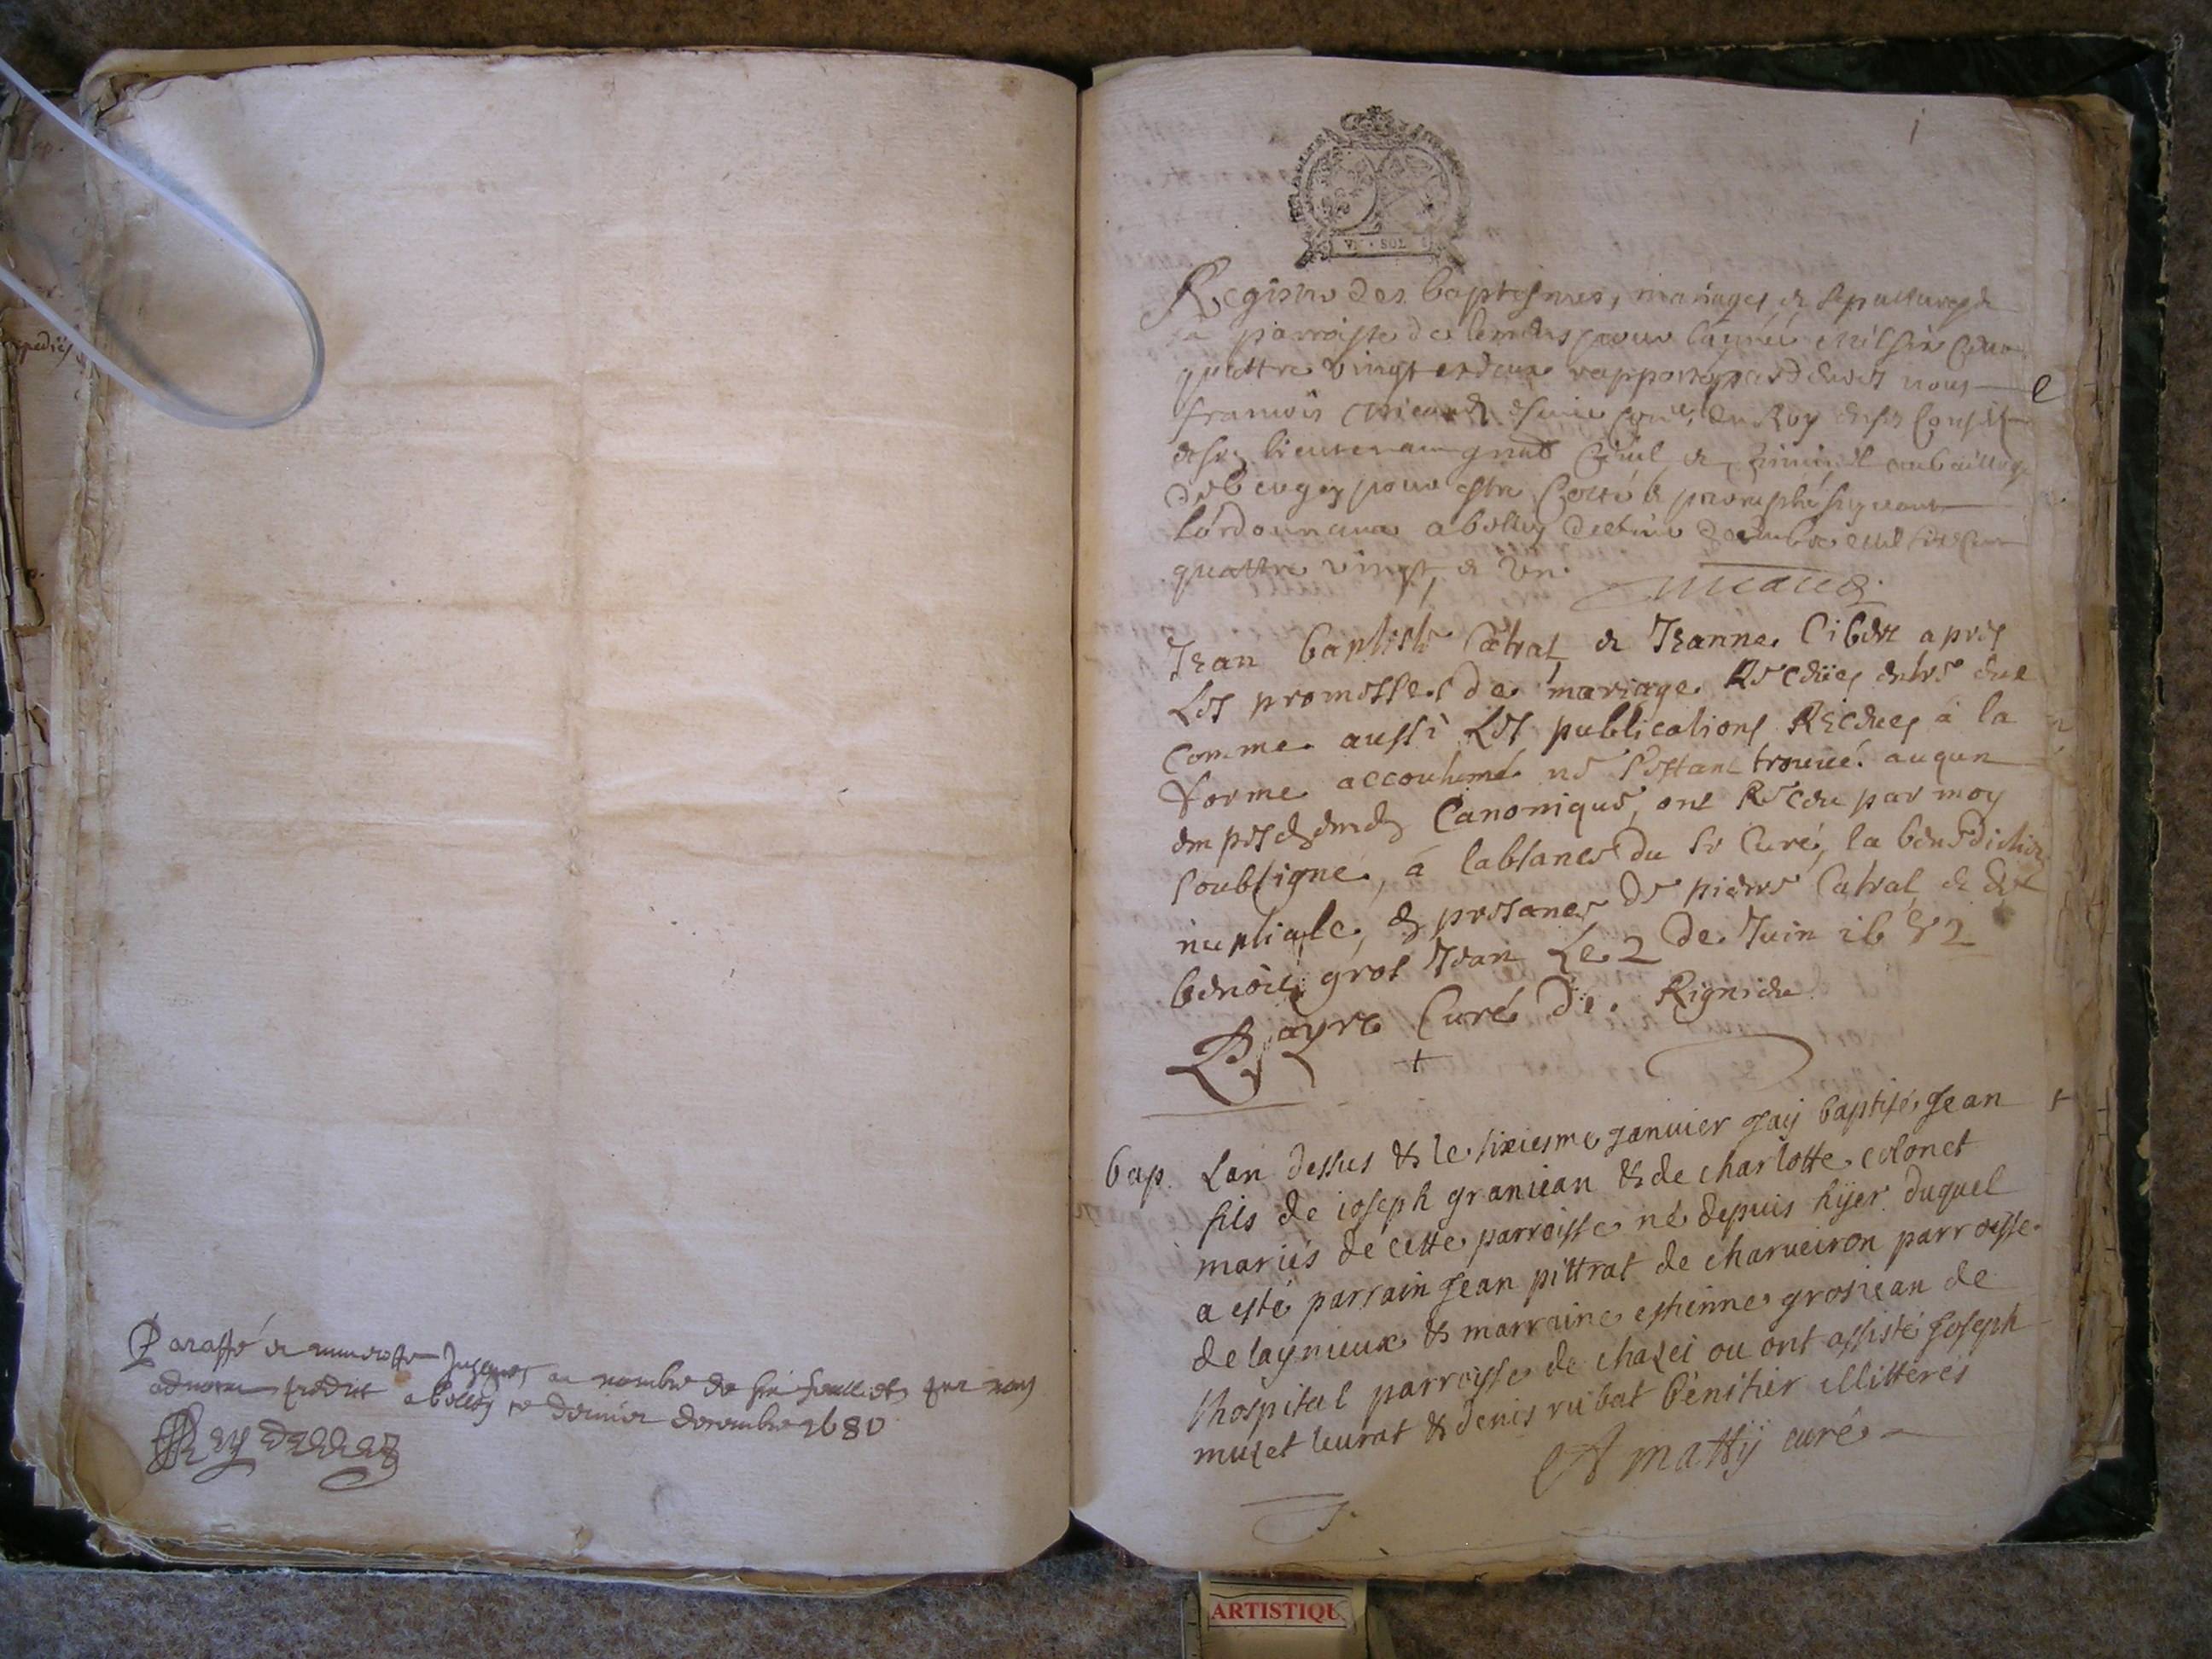 Paraffé et numerotté Jusques au nombre de six feuillets par nous
susdit a belley ce dernier decembre 1680
1
VI · SOL
Registre des baptesmes, mariages et sepultures de
la parroisse de pour l'année mil six cens
quattre vingt et deux rapporté pardevers nous
francois du Roy en ses conseils
lieutenant gnal civil et criminel au bailliage
de beugey pour estre cotté et paraphé suyvant
lordonnance a belley decembre mil six cens
quattre vingt et un.
Jean baptiste Catrat et Jeanne Cibert apres
Les promesses de mariage Receües entre eux
Comme aussi Les publications Receues à la
forme accoutumé ne s'estant trouué auqun
Canonique, ont Receu par moy
soubsigné, a labsance du Sr Curé, la benediction
nuptiale, en presance de pierre Catrat et de
benoit gros Jean Le 2 de Juin 1682
Curé de Rignieu
+
bap. Lan dessus & le sixiesme januier jay baptisé jean
fils de ioseph graniean & de charlotte colonet
mariés de cette parroisse né depuis hyer duquel
a esté parrain jean pittrat de charueiron parroisse
de lagnieux & marraine estienne grosiean de
lhospital parroisse de chazei ou ont assisté joseph
muzet leurat & denis rubat bénitier illitterés
A matty curé
ARTISTIQU